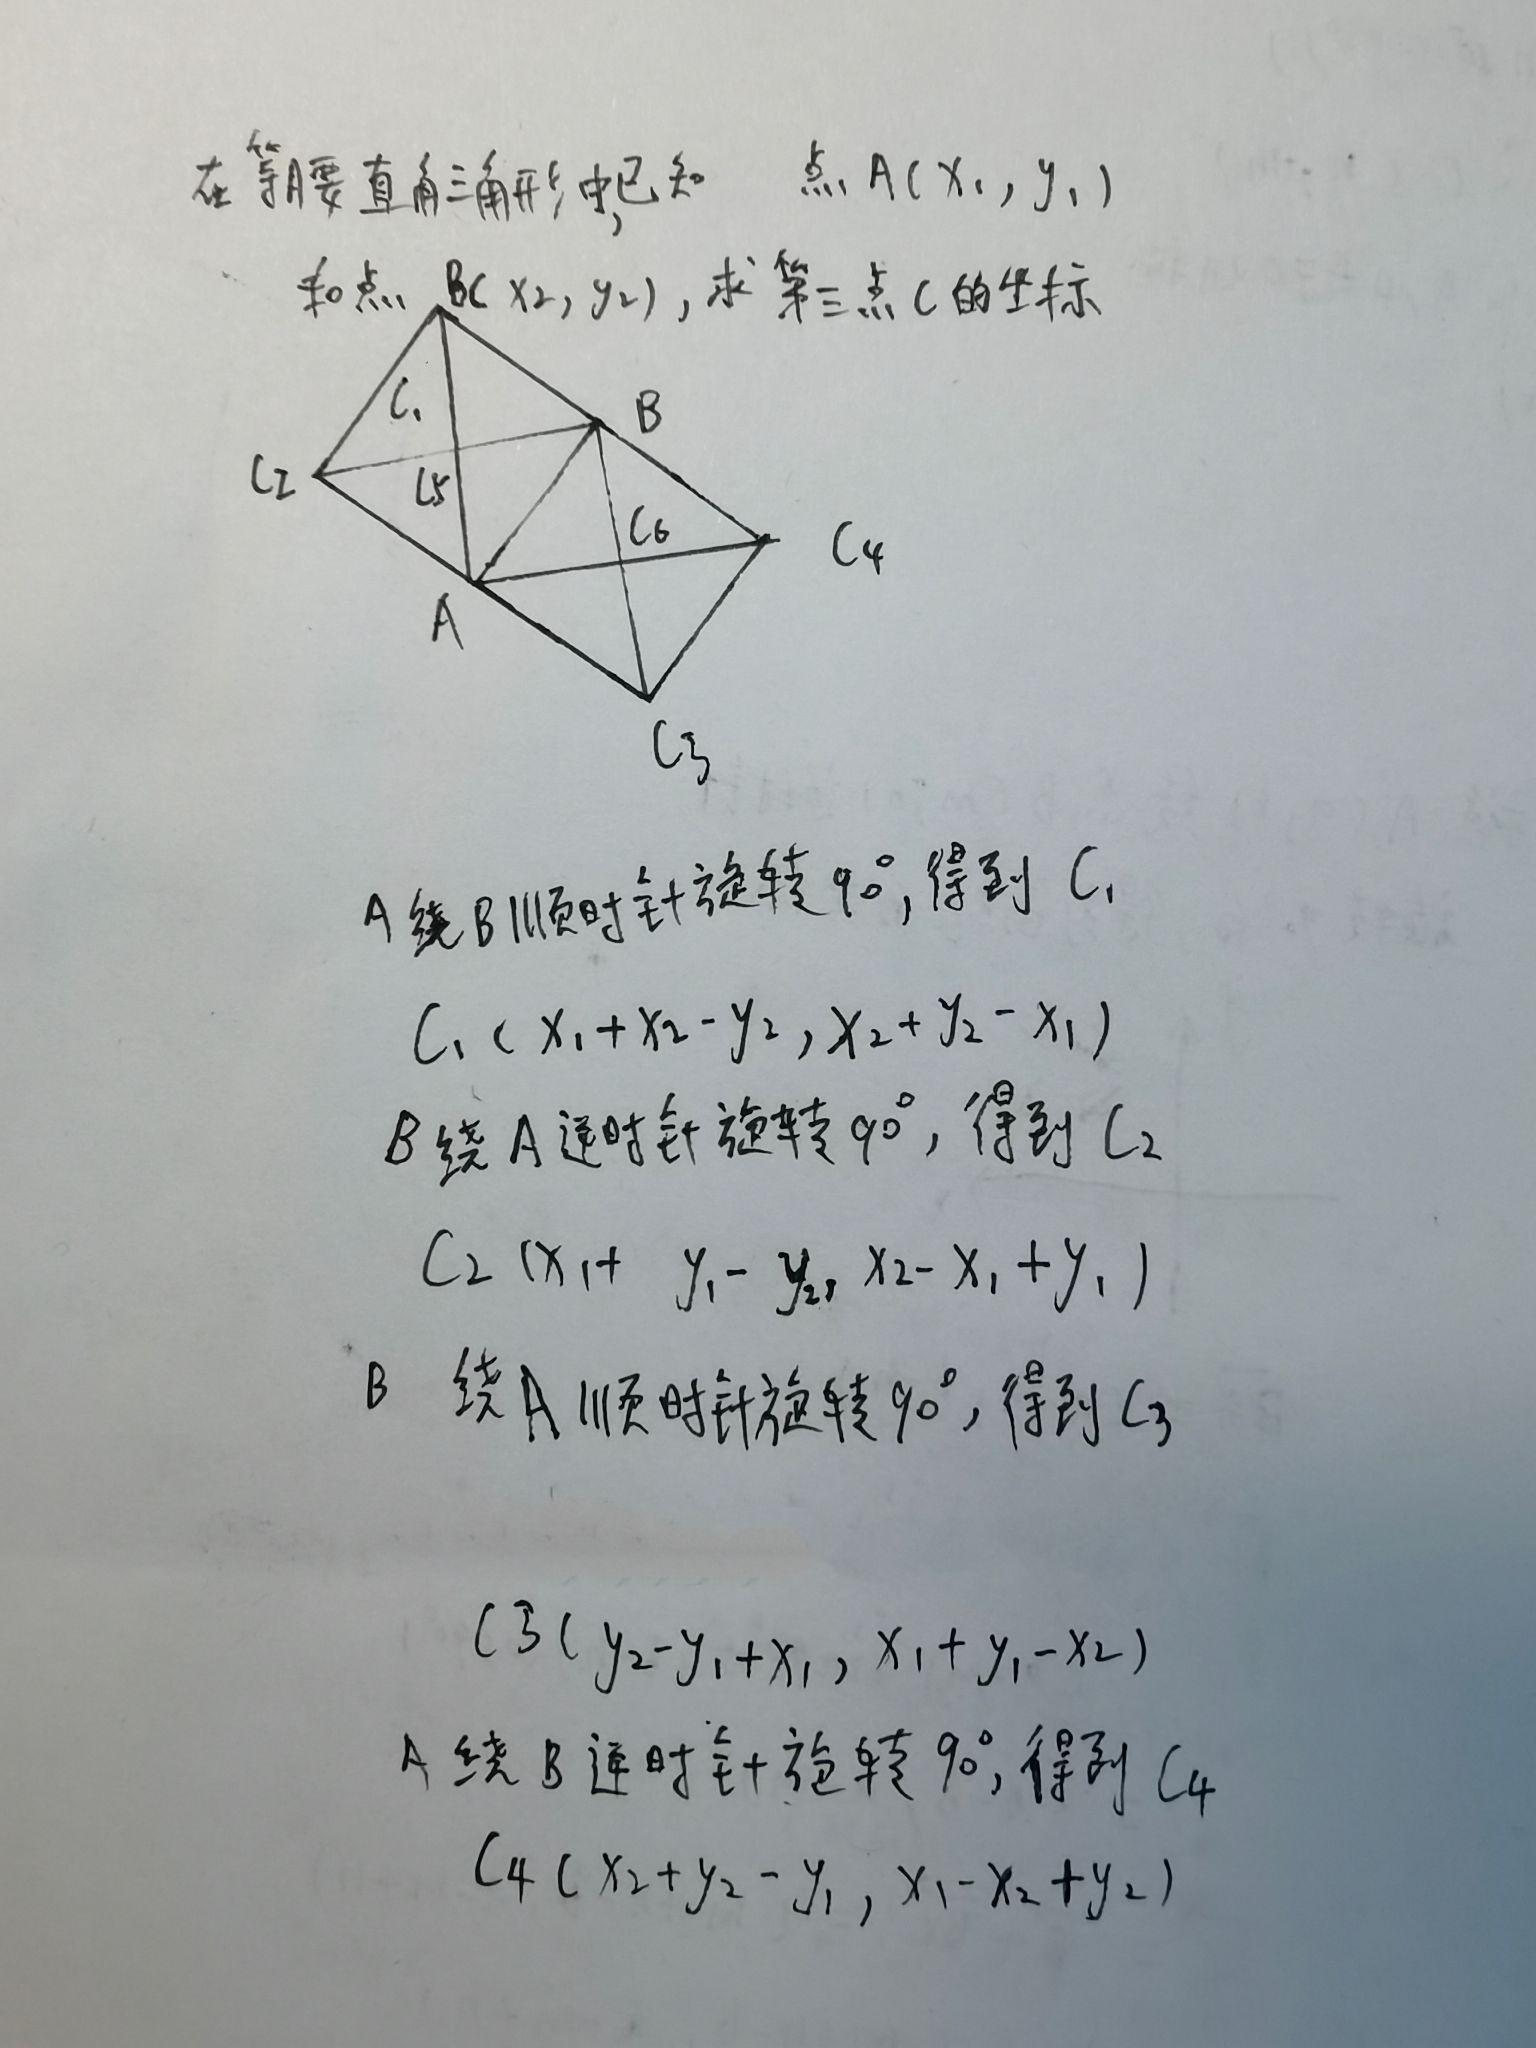 在等腰直角三角形中,已知 点A(x₁,y₁)
和点B(x₂,y₂),求第三点C的坐标
C₁
B
C₂
C5
C6
C4
A
C3
A绕B顺时针旋转90°,得到C₁
C₁(x₁+x₂-y₂,x₂+y₂-x₁)
B绕A逆时针旋转90°,得到C₂
C₂(x₁+y₁-y₂,x₂-x₁+y₁)
B绕A顺时针旋转90°,得到C₃
C3(y₂-y₁+x₁,x₁+y₁-x₂)
A绕B逆时针旋转90°,得到C4
C4(x₂+y₂-y₁,x₁-x₂+y₂)